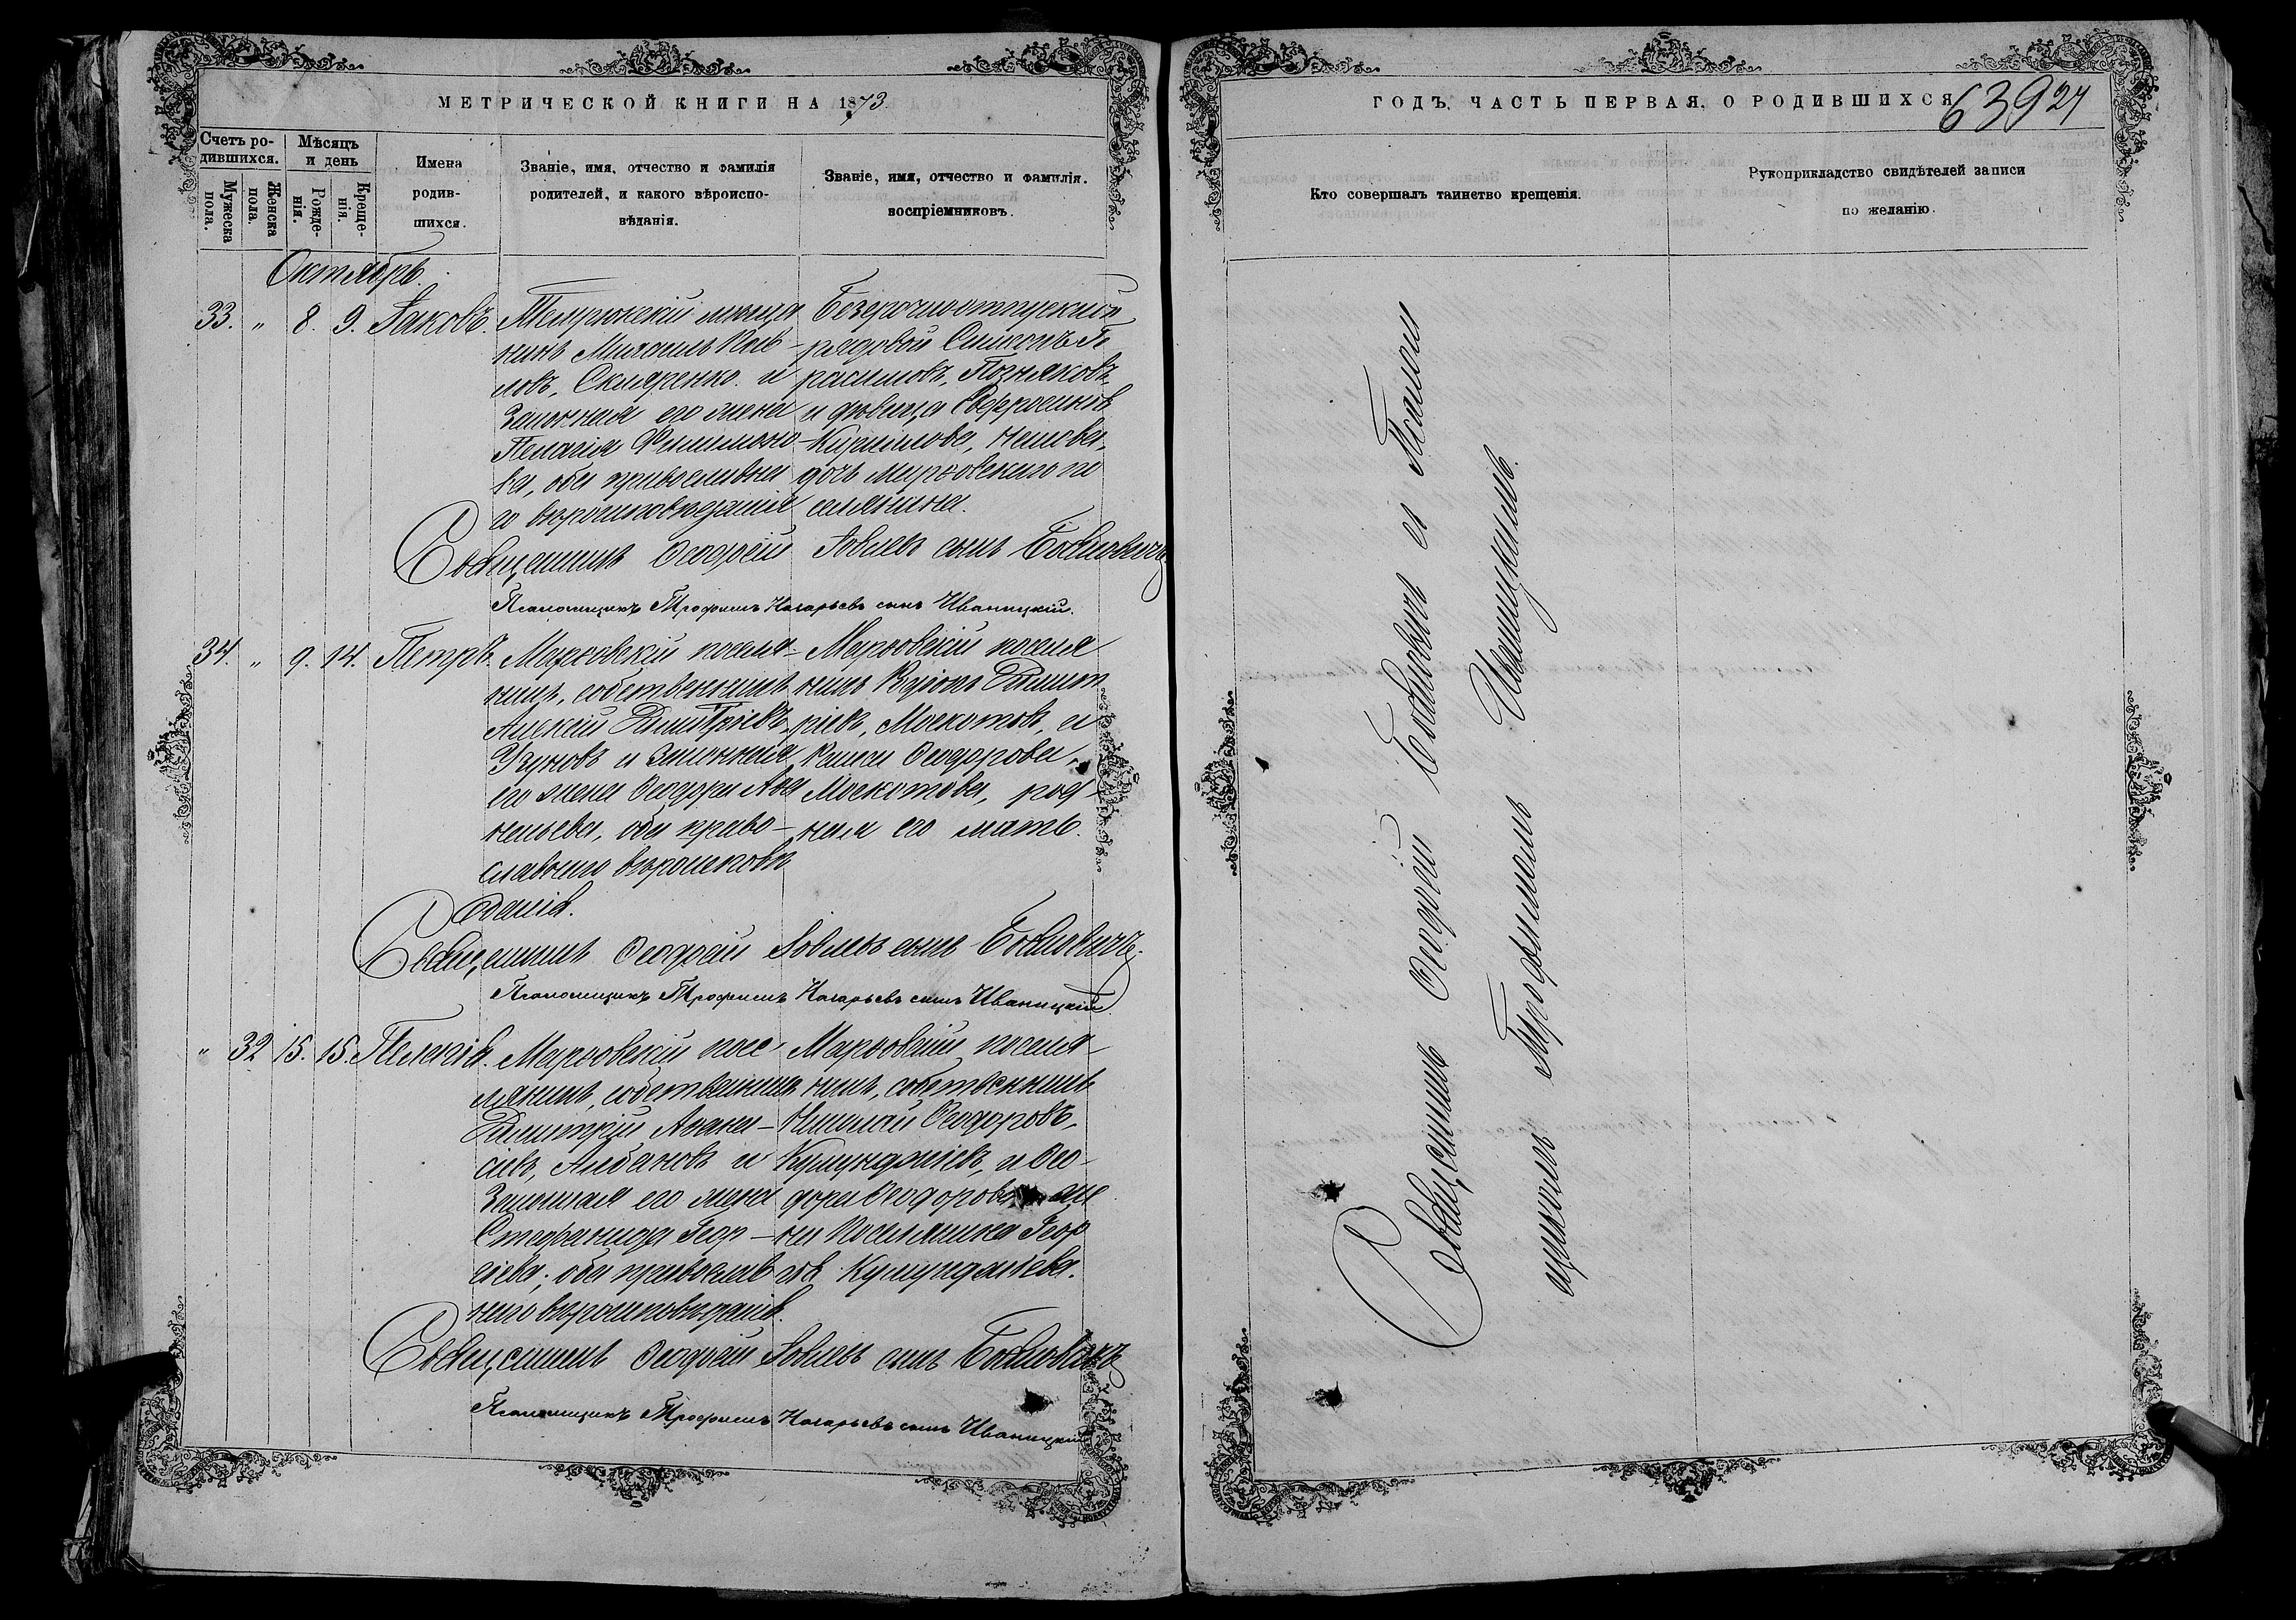 МЕТРИЧЕСКОЙ КНИГИ НА 1873
Счетъ ро-
дившихся.
Мужеска пола.
Женска пола.
Мѣсяцъ
и день
Рожде-
нія.
Креще-
нія.
Имена
родив-
шихся.
Званіе, имя, отчество и фамилія
родителей, и какого вѣроиспо-
вѣданія.
Званіе, имя, отчество и фамилія.
воспріемниковъ.
Октябрь.
33. „ 8. 9. Іаковъ.
Темрюкскій мѣща
нинъ Михаилъ Пав-
ловъ, Скляренко. и
Законная его жена
Пелагія Филимоно-
ва, оба православна
го вѣроисповѣданія
Безсрочноотпускной
рядовой Симонъ Ге
расимовъ, Позняковъ,
и дѣвица Евфросинія
Кириллова,
дочь Маріовскаго по
селянина.
Священникъ Ѳеодосій Іовлевъ сынъ Бойковичъ
Псаломщикъ Трофимъ Назарьевъ сынъ Иваницкій.
34. „ 9. 14. Петръ.
Маріовскій поселя-
нинъ, собственникъ
Алексій Димитріевъ,
Узуновъ и Законная
его жена Ѳеодора Ава
кельева, оба право-
славнаго вѣроисповѣ
данія.
Маріовскій поселя
нинъ Димит
ріевъ, Москотовъ, и
Ѳеодорова,
Москотова, род
ная его мать.
Священникъ Ѳеодосій Іовлевъ сынъ Бойковичъ.
Псаломщикъ Трофимъ Назарьевъ сынъ Иваницкій.
„ 32 15. 15. Пелагія.
Маріовскій посе
лянинъ, собственникъ
Димитрій Афана-
сіевъ, Албановъ и
Законная его жена
Стефанида Геор-
гіева; оба православ
наго вѣроисповѣданія.
Маріовскій поселя-
нинъ, собственникъ
Николай Ѳеодоровъ,
Куюнджіевъ, и Ѳео-
дора Ѳеодорова же
на Поселянина Геор
гія Куюнджіева.
Священникъ Ѳеодосій Іовлевъ сынъ Бойковичъ
Псаломщикъ Трофимъ Назарьевъ сынъ Иваницкій
ГОДЪ, ЧАСТЬ ПЕРВАЯ, О РОДИВШИХСЯ
639 24
Кто совершалъ таинство крещенія.
Рукоприкладство свидѣтелей записи
по желанію.
Священникъ Ѳеодосій Бойковичъ съ Псалом
щикомъ Трофимомъ Иваницкимъ.